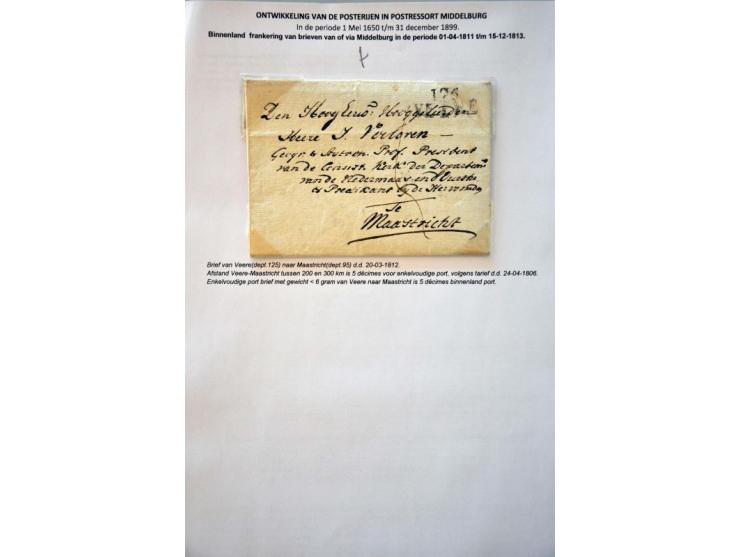 ONTWIKKELING VAN DE POSTERIJEN IN POSTRESSORT MIDDELBURG
In de periode 1 Mei 1650 t/m 31 december 1899.
Binnenland frankering van brieven van of via Middelburg in de periode 01-04-1811 t/m 15-12-1813.
Den HoogEerw: Hooggeleerden
Heere J. Verloren
Prof. President
van de Consist. Kerk der Departem
van de Nedermaas en
& Predikant by de Hervormde
Te
Maastricht
Brief van Veere(dept.125) naar Maastricht(dept.95) d.d. 20-03-1812.
Afstand Veere-Maastricht tussen 200 en 300 km is 5 décimes voor enkelvoudige port, volgens tarief d.d. 24-04-1806.
Enkelvoudige port brief met gewicht < 6 gram van Veere naar Maastricht is 5 décimes binnenland port.